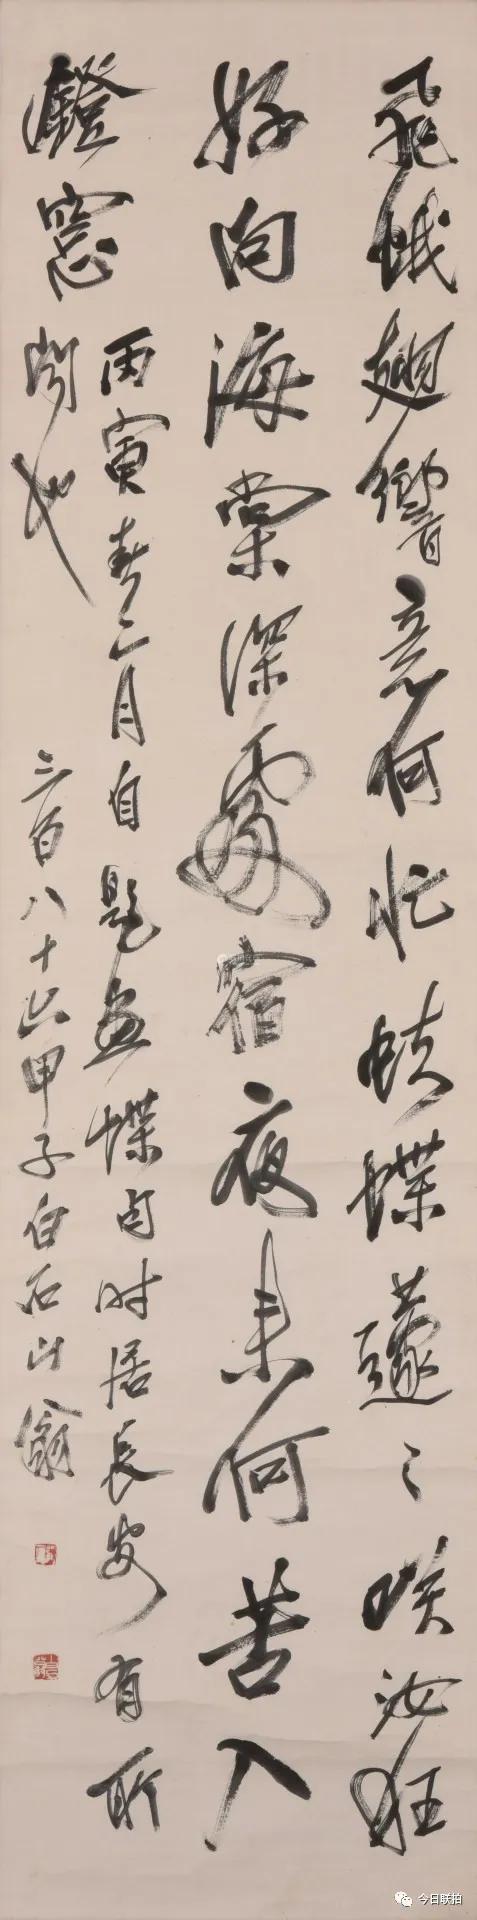 飛蛾翅響意何忙蛺蝶蘧〻咲汝狂
好向海棠深處宿夜來何苦入
鐙窓
丙寅春二月自題畫蝶句时居長安有所
聞也
三百八十六甲子白石山翁
今日联拍